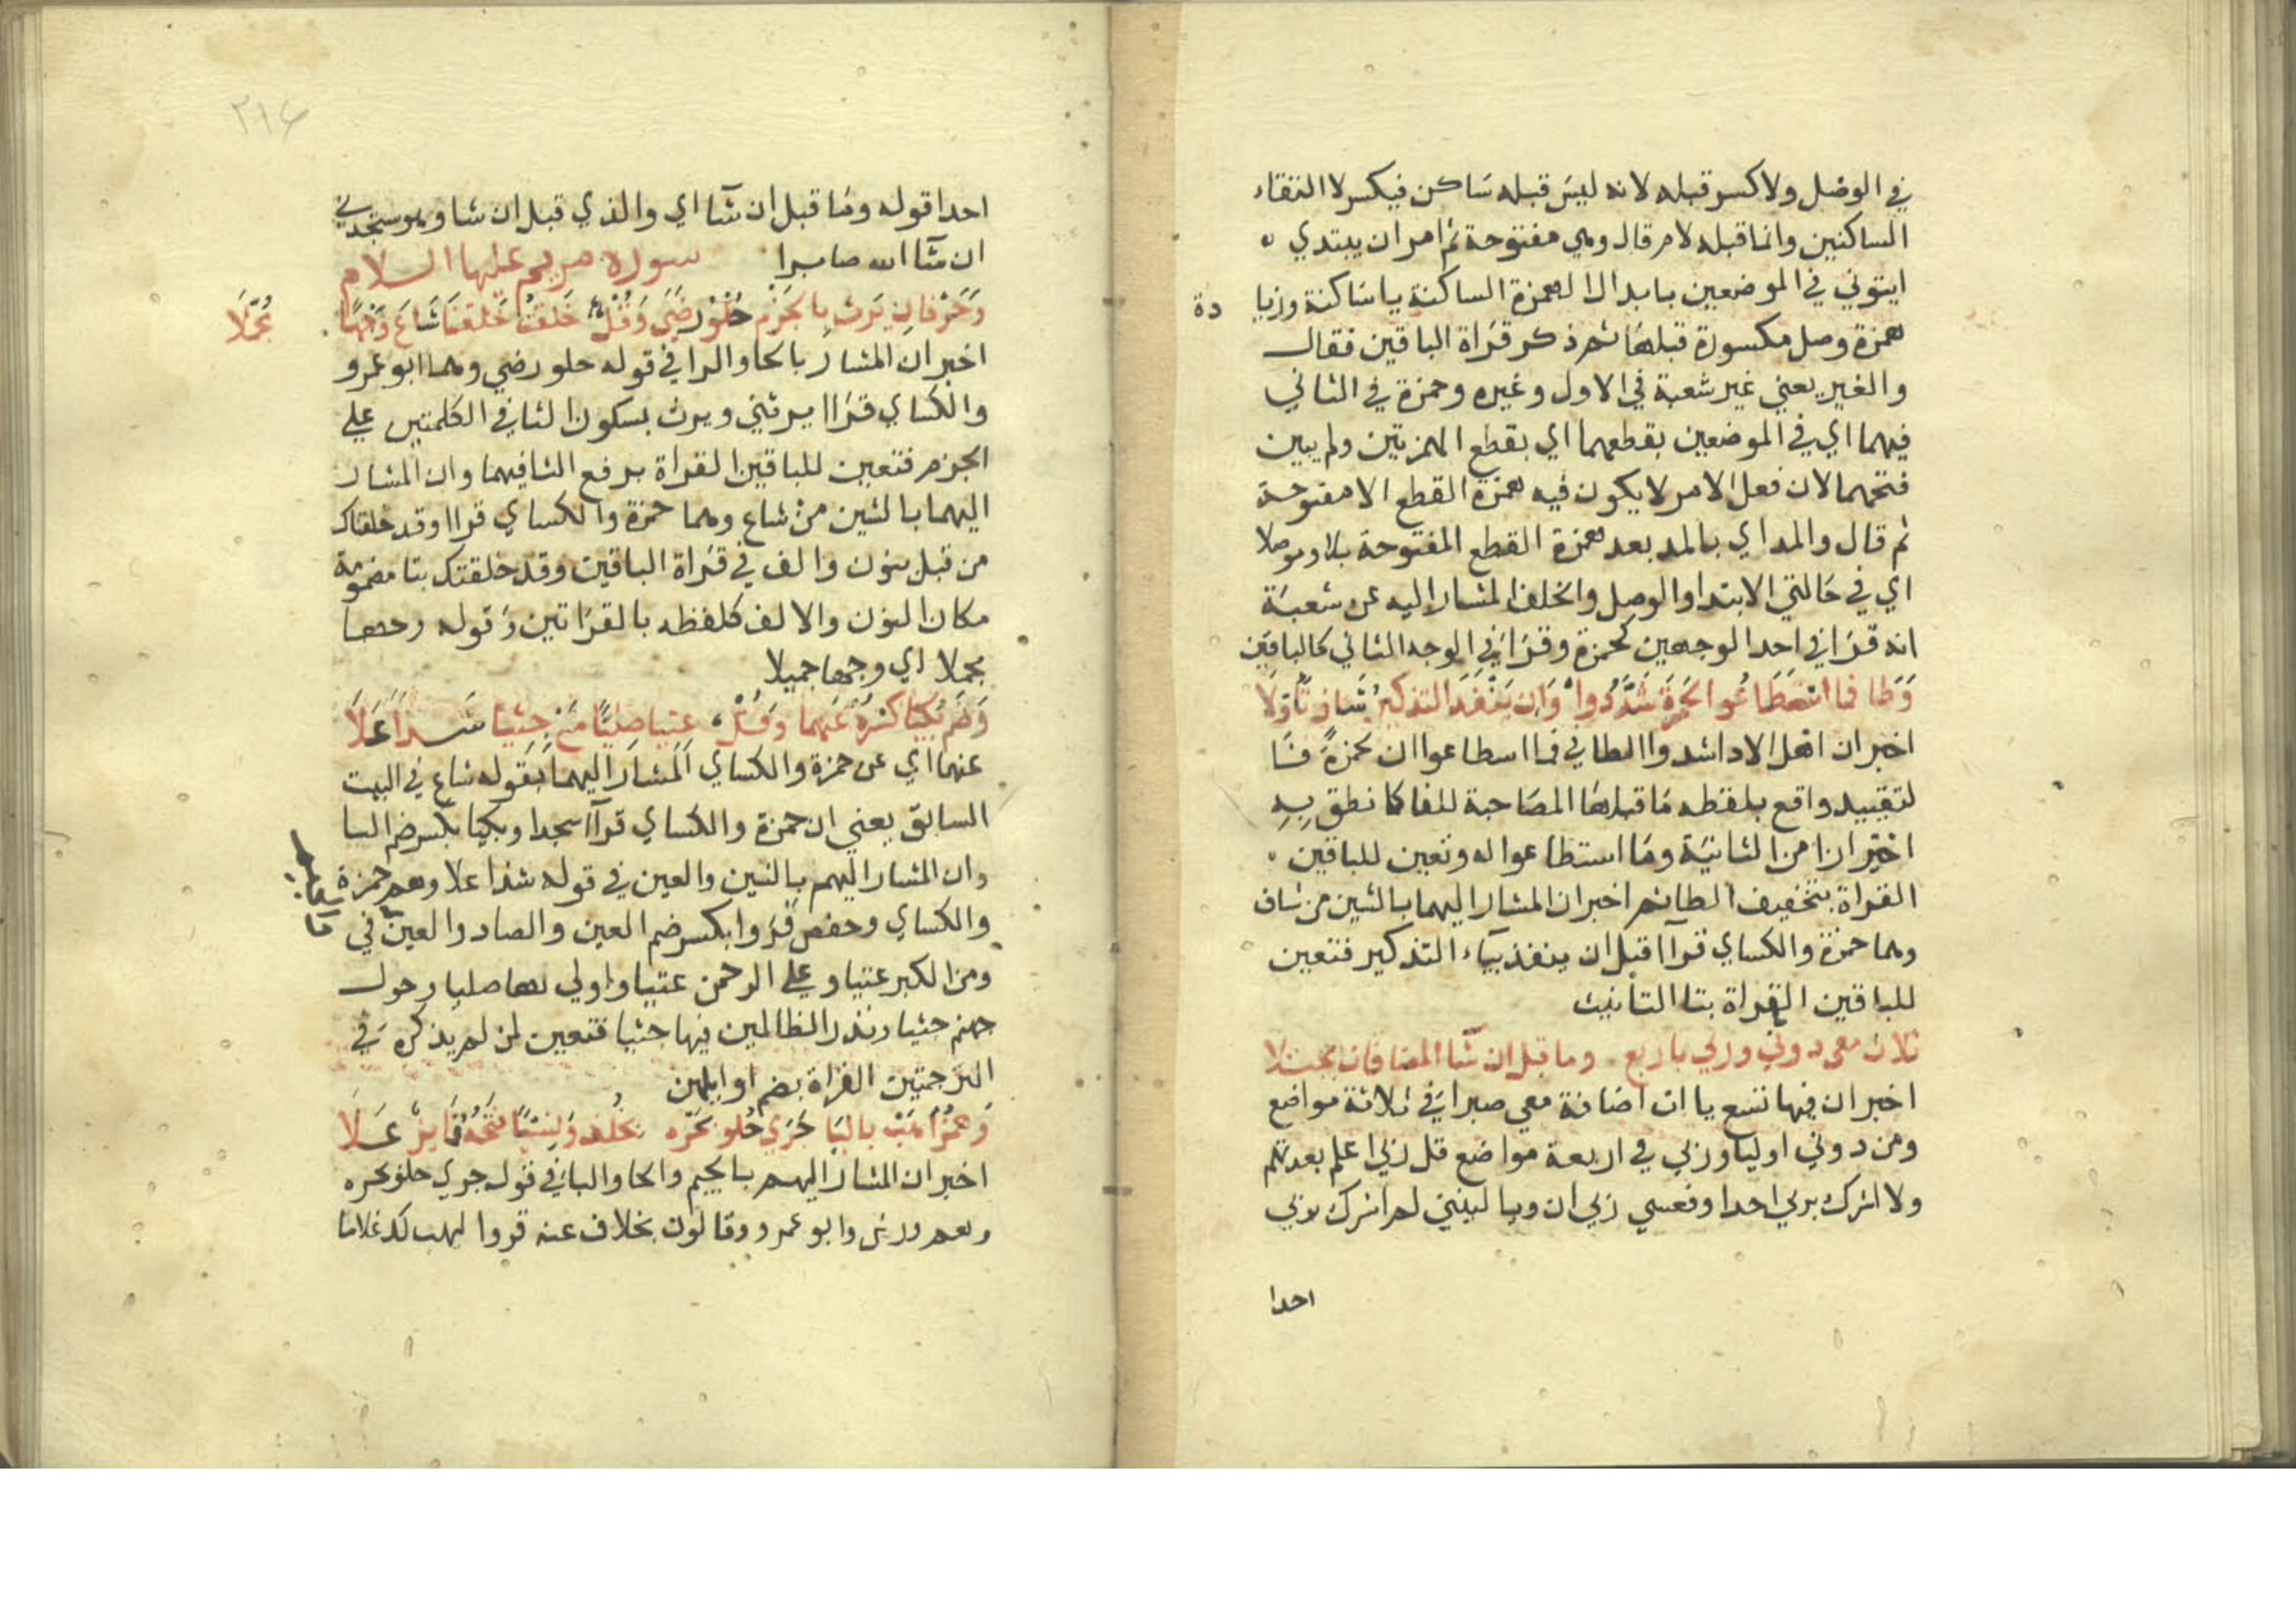 في الوصل ولا كسر قبله لانه ليس قبله ساكن فيكسر لالتقاء
الساكنين وانما قبله لام قال وهي مفتوحة ثم امر ان يبتدي
ايتوني في الموضعين بابدال الهمزة الساكنة ياساكنة وزيا دة
همزة وصل مكسورة قبلها ثم ذكر قراة الباقين فقال
والغير يعني غير شعبة في الاول وغيره وحمزة في الثاني
فيهما اي في الموضعين بقطعهما اي بقطع الهمزتين ولم يبين
فتحهما لان فعل الامر لا يكون فيه همزة القطع الا مفتوحة
ثم قال والمد اي بالمد بعد همزة القطع المفتوحة بدا وموصلا
اي في حالتي الابتدا والوصل والخلف المشار اليه عن شعبة
انه قرا في احد الوجهين كحمزة وقرا في الوجه الثاني كالباقين
وطا فما اسطاعوا لحمزة شددوا وان ينفد التذكير شاف تاولا
اخبر ان اهل الادا شدوا الطا في فما اسطاعوا ان لحمزة
لتقييد واقع بلفظه ما قبلها المصاحبة للفا كما نطق به
احترازا من الثانية وما استطاعوا له وتعين للباقين
القراة بتخفيف الطا ثم اخبر ان المشار اليهما بالشين من شاف
وهما حمزة والكساي قرآ قبل ان ينفد بياء التذكير فتعين
للباقين القراة بتا التانيث
ثلاث معي دوني وربي باربع وما قبل ان شا المضافات تجتلا
اخبر ان فيها تسع يا ات اضافة معي صبرا في ثلاثة مواضع
ومن دوني اوليا وربي في اربعة مواضع قل ربي اعلم بعدتهم
ولا اشرك بربي احدا وفعسي ربي ان ويا ليتني لم اشرك بربي
احدا
٢١٤
احدا قوله وما قبل ان شا اي والذي قبل ان شا وهو ستجدني
ان شا الله صابرا سورة مريم عليها السلام
وحرفا يرث بالجزم حلو رضي وقل خلقت خلقنا شاع وجها مجملا
اخبر ان المشار بالحا والرا في قوله حلو رضي وهما ابو عمرو
والكساي قرا يرثني ويرث بسكون الثا في الكلمتين علي
الجزم فتعين للباقين القراة برفع الثا فيهما وان المشار
اليهما بالشين من شاع وهما حمزة والكساي قرا وقد خلقناك
من قبل بنون والف في قراة الباقين وقد خلقتك بتا مضمومة
مكان النون والالف كلفظه بالقراتين وقوله وجها
مجملا اي وجها جميلا
وضم بكيا كسره عنهما وقل عتيا صليا مع جثيا شذا علا
عنهما اي عن حمزة والكساي المشار اليهما بقوله شاع في البيت
السابق يعني ان حمزة والكساي قرآ سجدا وبكيا بكسر ضم البا
وان المشار اليهم بالشين والعين في قوله شذا علا وهم حمزة
والكساي وحفص قروا بكسر ضم العين والصاد والعين في
ومن الكبر عتيا وعلي الرحمن عتيا واولي بها صليا وحول
جهنم جثيا ونذر الظالمين فيها جثيا فتعين لمن لم يذكره في
الترجمتين القراة بضم اوايلهن
وهمز اهب باليا جري حلو بحره بخلف ونسيا فتحه فايز علا
اخبر ان المشار اليهم بالجيم والحا والبا في قوله جري حلو بحره
وهم ورش وابو عمرو وقالون بخلاف عنه قروا ليهب لك غلاما